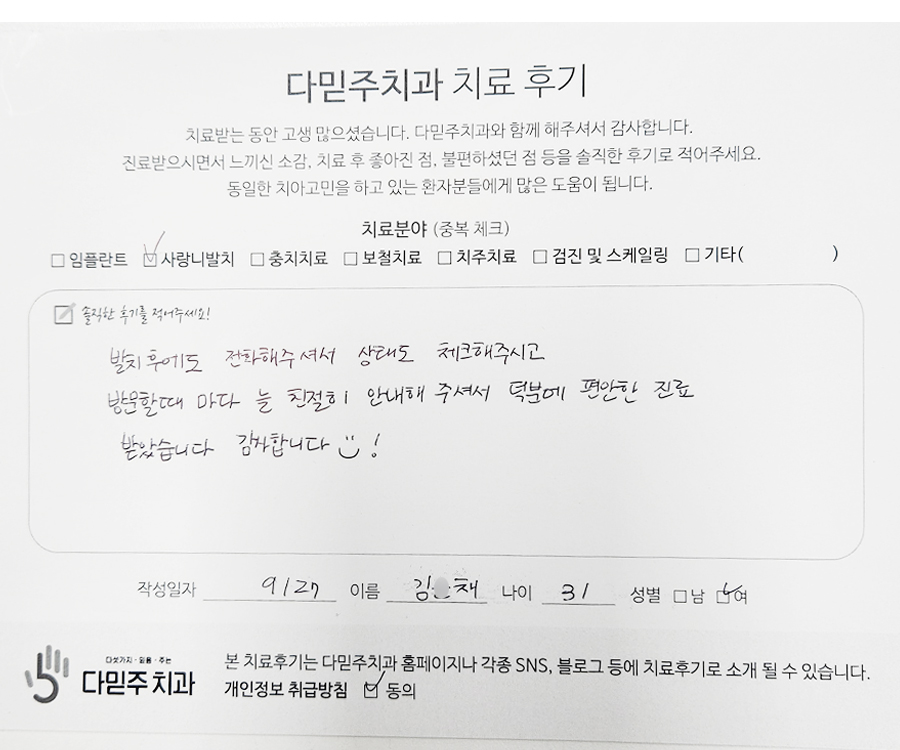 다믿주치과 치료 후기
치료받는 동안 고생 많으셨습니다. 다믿주치과와 함께 해주셔서 감사합니다.
진료받으시면서 느끼신 소감, 치료 후 좋아진 점, 불편하셨던 점 등을 솔직한 후기로 적어주세요.
동일한 치아고민을 하고 있는 환자분들에게 많은 도움이 됩니다.
치료분야 (중복 체크)
□ 임플란트 ☑ 사랑니발치 □ 충치치료 □ 보철치료 □ 치주치료 □ 검진 및 스케일링 □ 기타( )
솔직한 후기를 적어주세요!
발치 후에도 전화해주셔서 상태도 체크해주시고
방문할때 마다 늘 친절히 안내해 주셔서 덕분에 편안한 진료
받았습니다 감사합니다 !
작성일자 9/27 이름 김 채 나이 31 성별 □남 ☑여
다섯가지·믿음·주는
다믿주치과
본 치료후기는 다믿주치과 홈페이지나 각종 SNS, 블로그 등에 치료후기로 소개 될 수 있습니다.
개인정보 취급방침 ☑ 동의